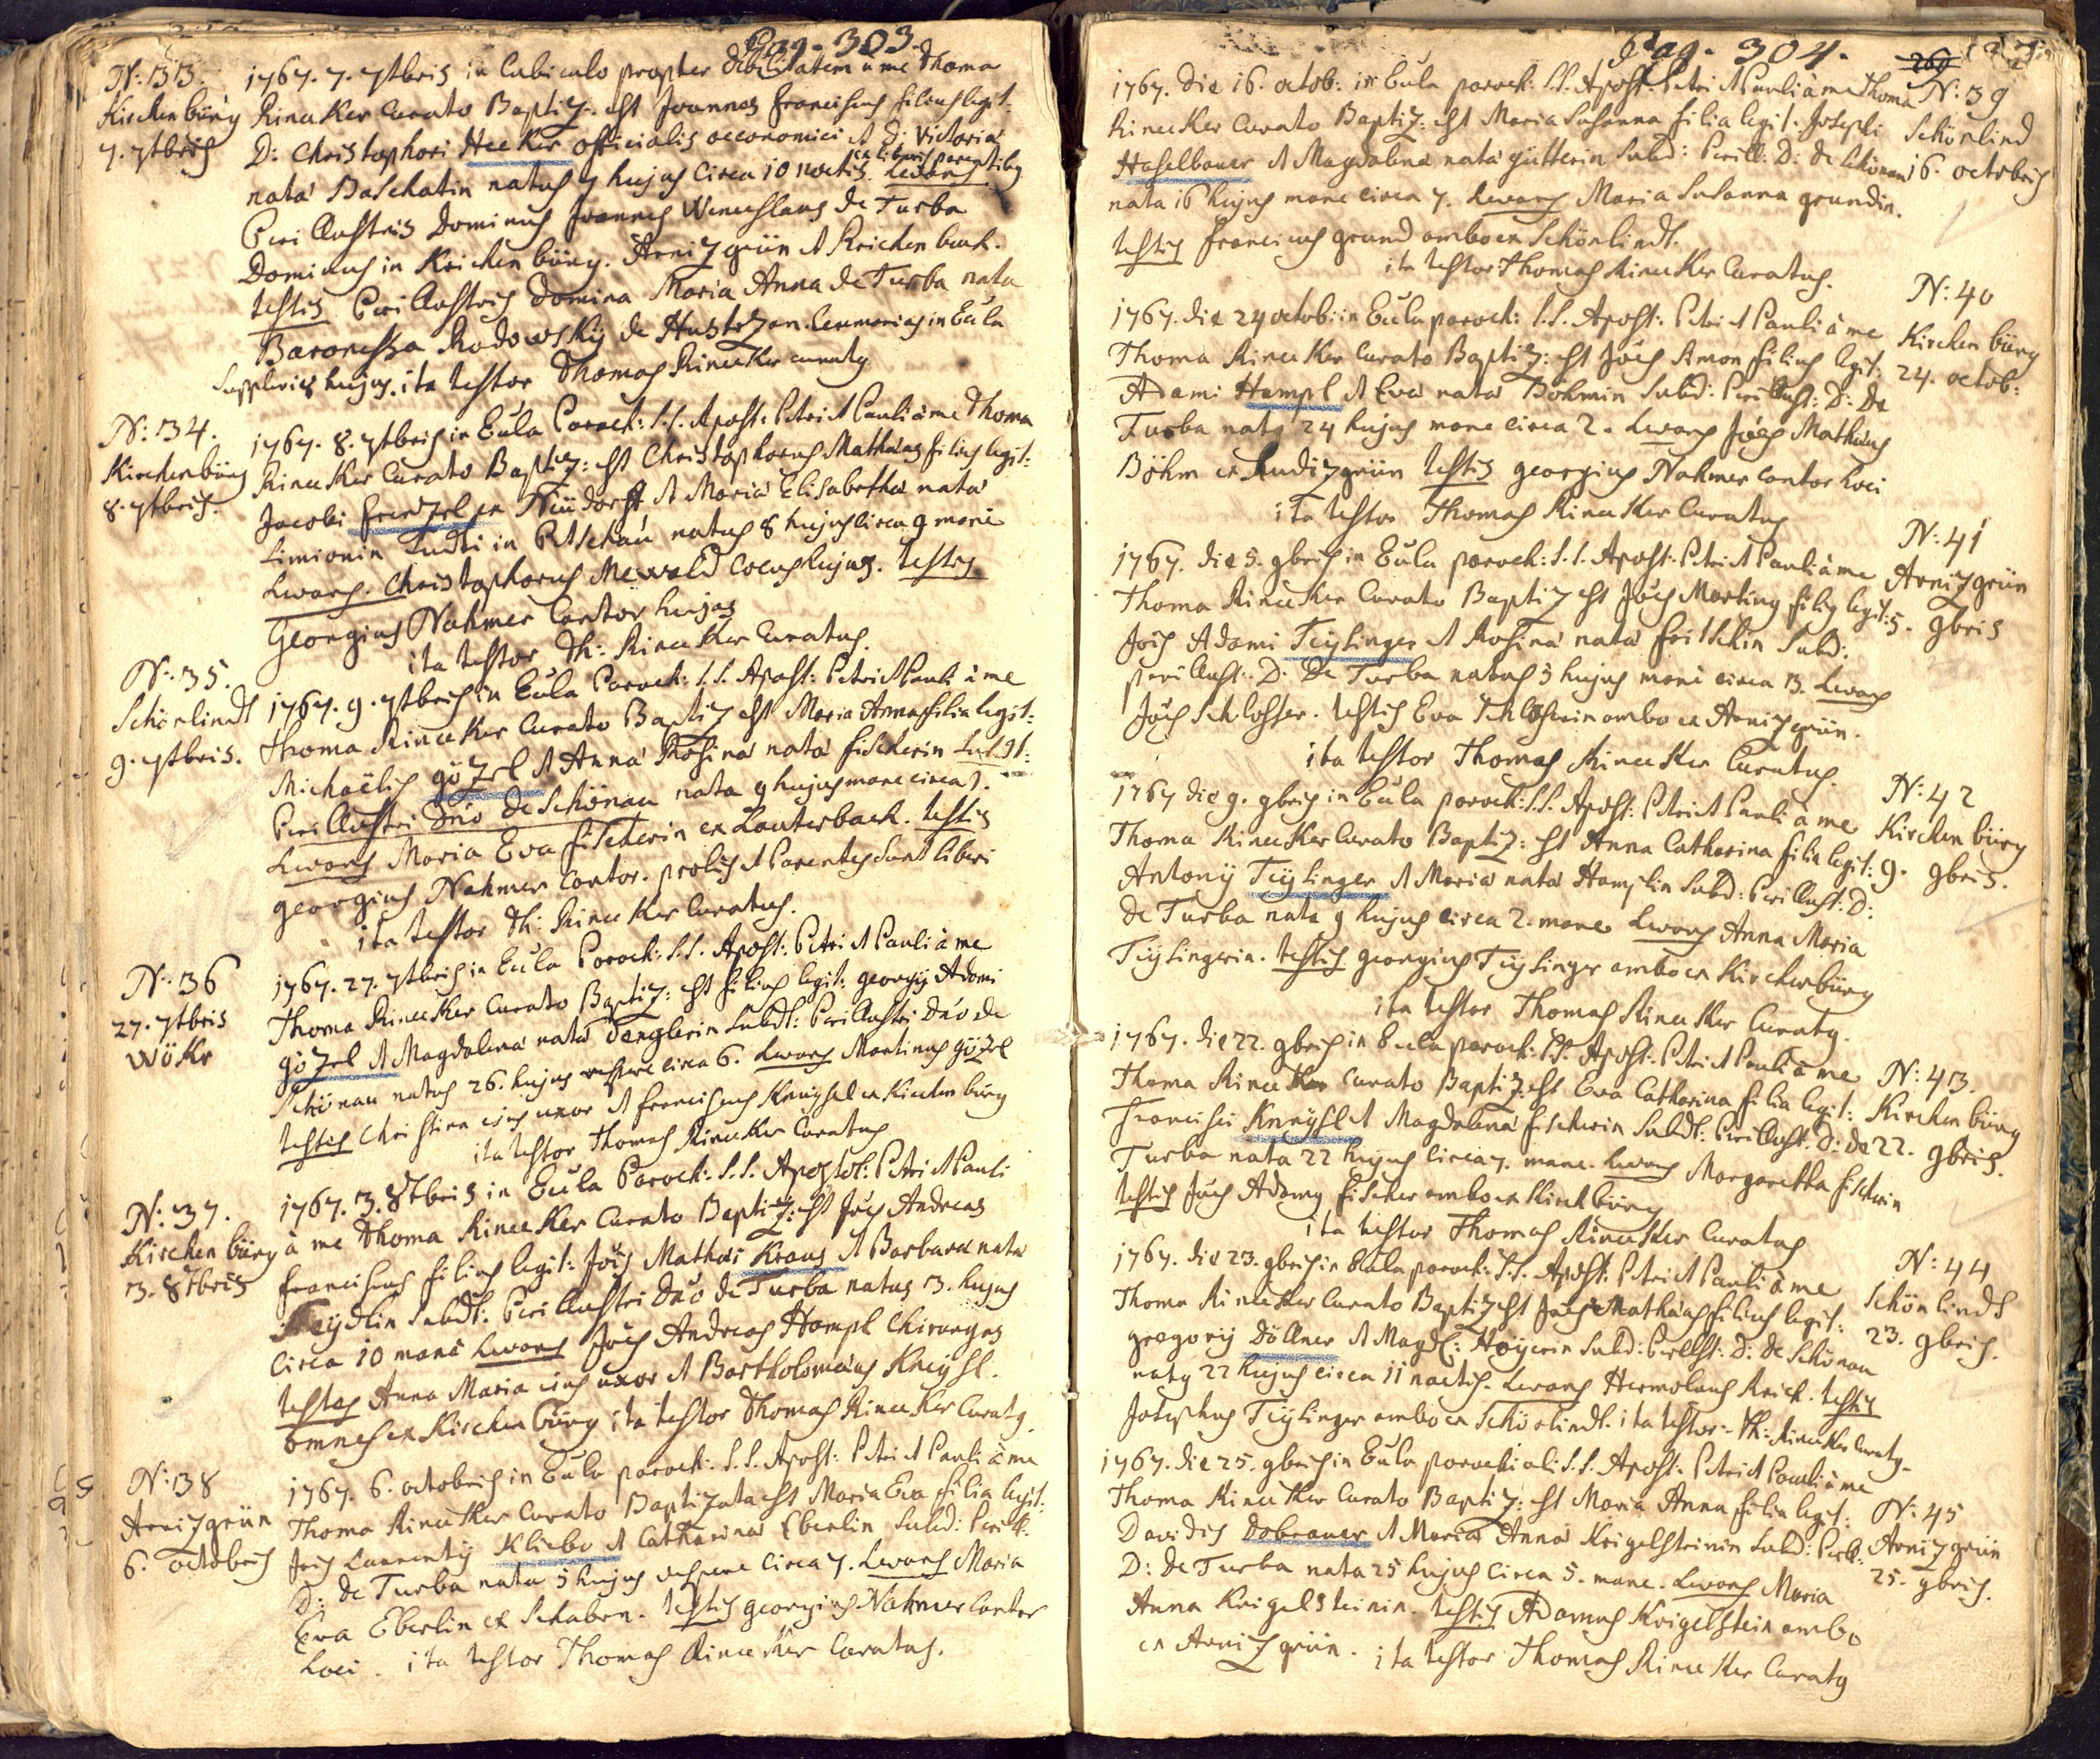 Pag. 303.
N: 33.
Kirchenbürg
7. 7tbris
1767. 7. 7tbris in Cubiculo propter debilitatem à me Thoma
Rinecker Curato Baptiz. est Joannes Franciscus filius legit:
D: Christophori Hecker officialis oeconomici et D: Victoria
nata Baschatin natus 7 hujus circa 10 noctis. ex liberis parentibus Levans
Perillustris Dominus Joannes Wenceslaus de Turba
Dominus in Kirchenbürg. Arnizgrün et Reichenbach.
testis Perillustris Domina Maria Anna de Turba nata
Baronessa Rodowsky de Hustrzan.
hujus. ita testor Thomas Rinecker curatus
N: 34.
Kirchenbürg
8. 7tbris.
1767. 8. 7tbris in Eula Paroch: S.S. Apost: Petri et Pauli à me Thoma
Rinecker Curato Baptiz: est Christophorus Mathaeus filius legit:
Jacobi Friedzel ex Neüdorff et Maria Elisabetha nata
Simionin Sudti in Petschau natus 8 hujus circa 9 mane
Levans. Christophorus Mewald Cocus hujas. testis
Georgius Nahmer Cantor hujas
ita testor Th: Rinecker Curatus.
N: 35.
Schönlindt
9. 7tbris.
1767. 9. 7tbris in Eula Paroch: S.S. Apost: Petri et Pauli à me
Thoma Rinecker Curato Baptiz est Maria Anna filia legit:
Michaëlis Gözel et Anna Rosina nata Fischerin Subdt:
Perillustri Dno de Schönau nata 9 hujus mane circa 7.
Levans Maria Eva Fischerin ex Lauterbach. testis
Georgius Nahmer Cantor. prolis et Parentes sunt liberi
ita testor Th: Rinecker Curatus.
N: 36
27. 7tbris
Wöhr
1767. 27. 7tbris in Eula Paroch: S.S. Apost: Petri et Pauli à me
Thoma Rinecker Curato Baptiz: est filius legit: Georgij Adami
Gözel et Magdalena nata Denglerin Subdt: Perillustri Dno de
Schönau natus 26. hujus vespere circa 6. Levans Martinus Gözel
testis Christina eius uxor et Franciscus Kneissel ex Kirchenbürg
ita testor Thomas Rinecker Curatus
N: 37.
Kirchenbürg
3. 8tbris
1767. 3. 8tbris in Eula Paroch: S.S. Apostol: Petri et Pauli
à me Thoma Rinecker Curato Baptiz: est Joës Andreas
Franciscus filius legit: Jois Mathaei Kraus et Barbara nata
Neydlin Subdt: Perillustri Dno de Turba natus 3. hujus
circa 10 mane Levans Joës Andreas Hampl Chirurgus
testes Anna Maria eius uxor et Bartholomaeus Kneyssl.
omnes ex Kirchenbürg ita testor Thomas Rinecker Curatus.
N: 38
Arnizgrün
6. octobris
1767. 6. octobris in Eula paroch: S.S. Apost: Petri et Pauli à me
Thoma Rinecker Curato Baptizata est Maria Eva filia legit:
Jois Laurentij Kliebe et Catharina Eberlin Subd: Perill:
D: de Turba nata 5 hujus vespere circa 7. Levans Maria
Eva Eberlin ex Schaben. testis Georgius Nahmer Cantor
Loci. ita testor Thomas Rinecker Curatus.
Pag. 304.
269
1767. die 16. octob: in Eula paroch: S.S. Apost: Petri et Pauli à me Thoma
Rinecker Curato Baptiz: est Maria Susanna filia legit. Josephi
Haselbauer et Magdalena nata Gütterin Subd: Perill: D: de Schönau
nata 16 hujus mane circa 7. Levans Maria Susanna Grundin.
testis Franciscus Grund ambo ex Schönlindt.
ita testor Thomas Rinecker Curatus.
N: 39
Schönlind
16. octobris
1767. die 24 octob: in Eula paroch: S.S. Apost: Petri et Pauli à me
Thoma Rinecker Curato Baptiz: est Joës Simon filius legit:
Adami Hampl et Eva nata Böhmin Subd: Perillust: D: De
Turba natus 24 hujus mane circa 2. Levans Joës Mathaeus
Böhm ex Rudizgrün testis Georgius Nahmer Cantor Loci
ita testor Thomas Rinecker Curatus
N: 40
Kirchenbürg
24. octob:
1767. die 5. 9bris in Eula paroch: S.S. Apost: Petri et Pauli à me
Thoma Rinecker Curato Baptiz est Joës Martinus filius legit:
Jois Adami Teyssinger et Rosina nata Fritschin Subd:
perillust: D: De Turba natus 5 hujus mane circa 3. Levans
Joës Schlosser. testis Eva Schlosserin ambo ex Arnizgrün.
ita testor Thomas Rinecker Curatus.
N: 41
Arnizgrün
5. 9bris
1767 die 9. 9bris in Eula paroch: S.S. Apost: Petri et Pauli à me
Thoma Rinecker Curato Baptiz: est Anna Catharina filia legit:
Antonij Teyssinger et Maria nata Hamplin Subd: Perillust: D:
de Turba nata 9 hujus circa 2. mane Levans Anna Maria
Teyssingerin. testis Georgius Teyssinger ambo ex Kirchenbürg
ita testor Thomas Rinecker Curatus.
N: 42
Kirchenbürg
9. 9bris.
1767. die 22. 9bris in Eula paroch: S.S. Apost: Petri et Pauli à me
Thoma Rinecker Curato Baptiz: est Eva Catharina filia legit:
Francisci Kneyssl et Magdalena Fischerin Subdt: Perillust: D: de
Turba nata 22 hujus circa 7. mane. Levans Margaretha Fischerin
testis Joës Adamus Fischer ambo ex Kirchbürg
ita testor Thomas Rinecker Curatus
N: 43.
Kirchenbürg
22. 9bris.
1767. die 23. 9bris in Eula paroch: S.S. Apost: Petri et Pauli à me
Thoma Rinecker Curato Baptiz est Joës Mathaeus filius legit:
Gregorij Döllner et Magdl: Hoyerin Subd: Perillst: D: de Schönau
natus 22 hujus circa 11 noctis. Levans Hermolaus Reich. testis
Josephus Teyssinger ambo ex Schönlindt. ita testor. Th: Rinecker Curatus.
N: 44
Schönlindt
23. 9bris.
1767. die 25. 9bris in Eula parochiali S.S. Apost: Petri et Pauli à me
Thoma Rinecker Curato Baptiz: est Maria Anna filia legit:
Davidis Dobrauer et Maria Anna Krigelsteinin Subd: Perill:
D: de Turba nata 25 hujus circa 5. mane. Levans Maria
Anna Krigelsteinin. testis Adamus Krigelstein ambo
ex Arnizgrün. ita testor Thomas Rinecker Curatus
N: 45
Arnizgrün
25. 9bris.